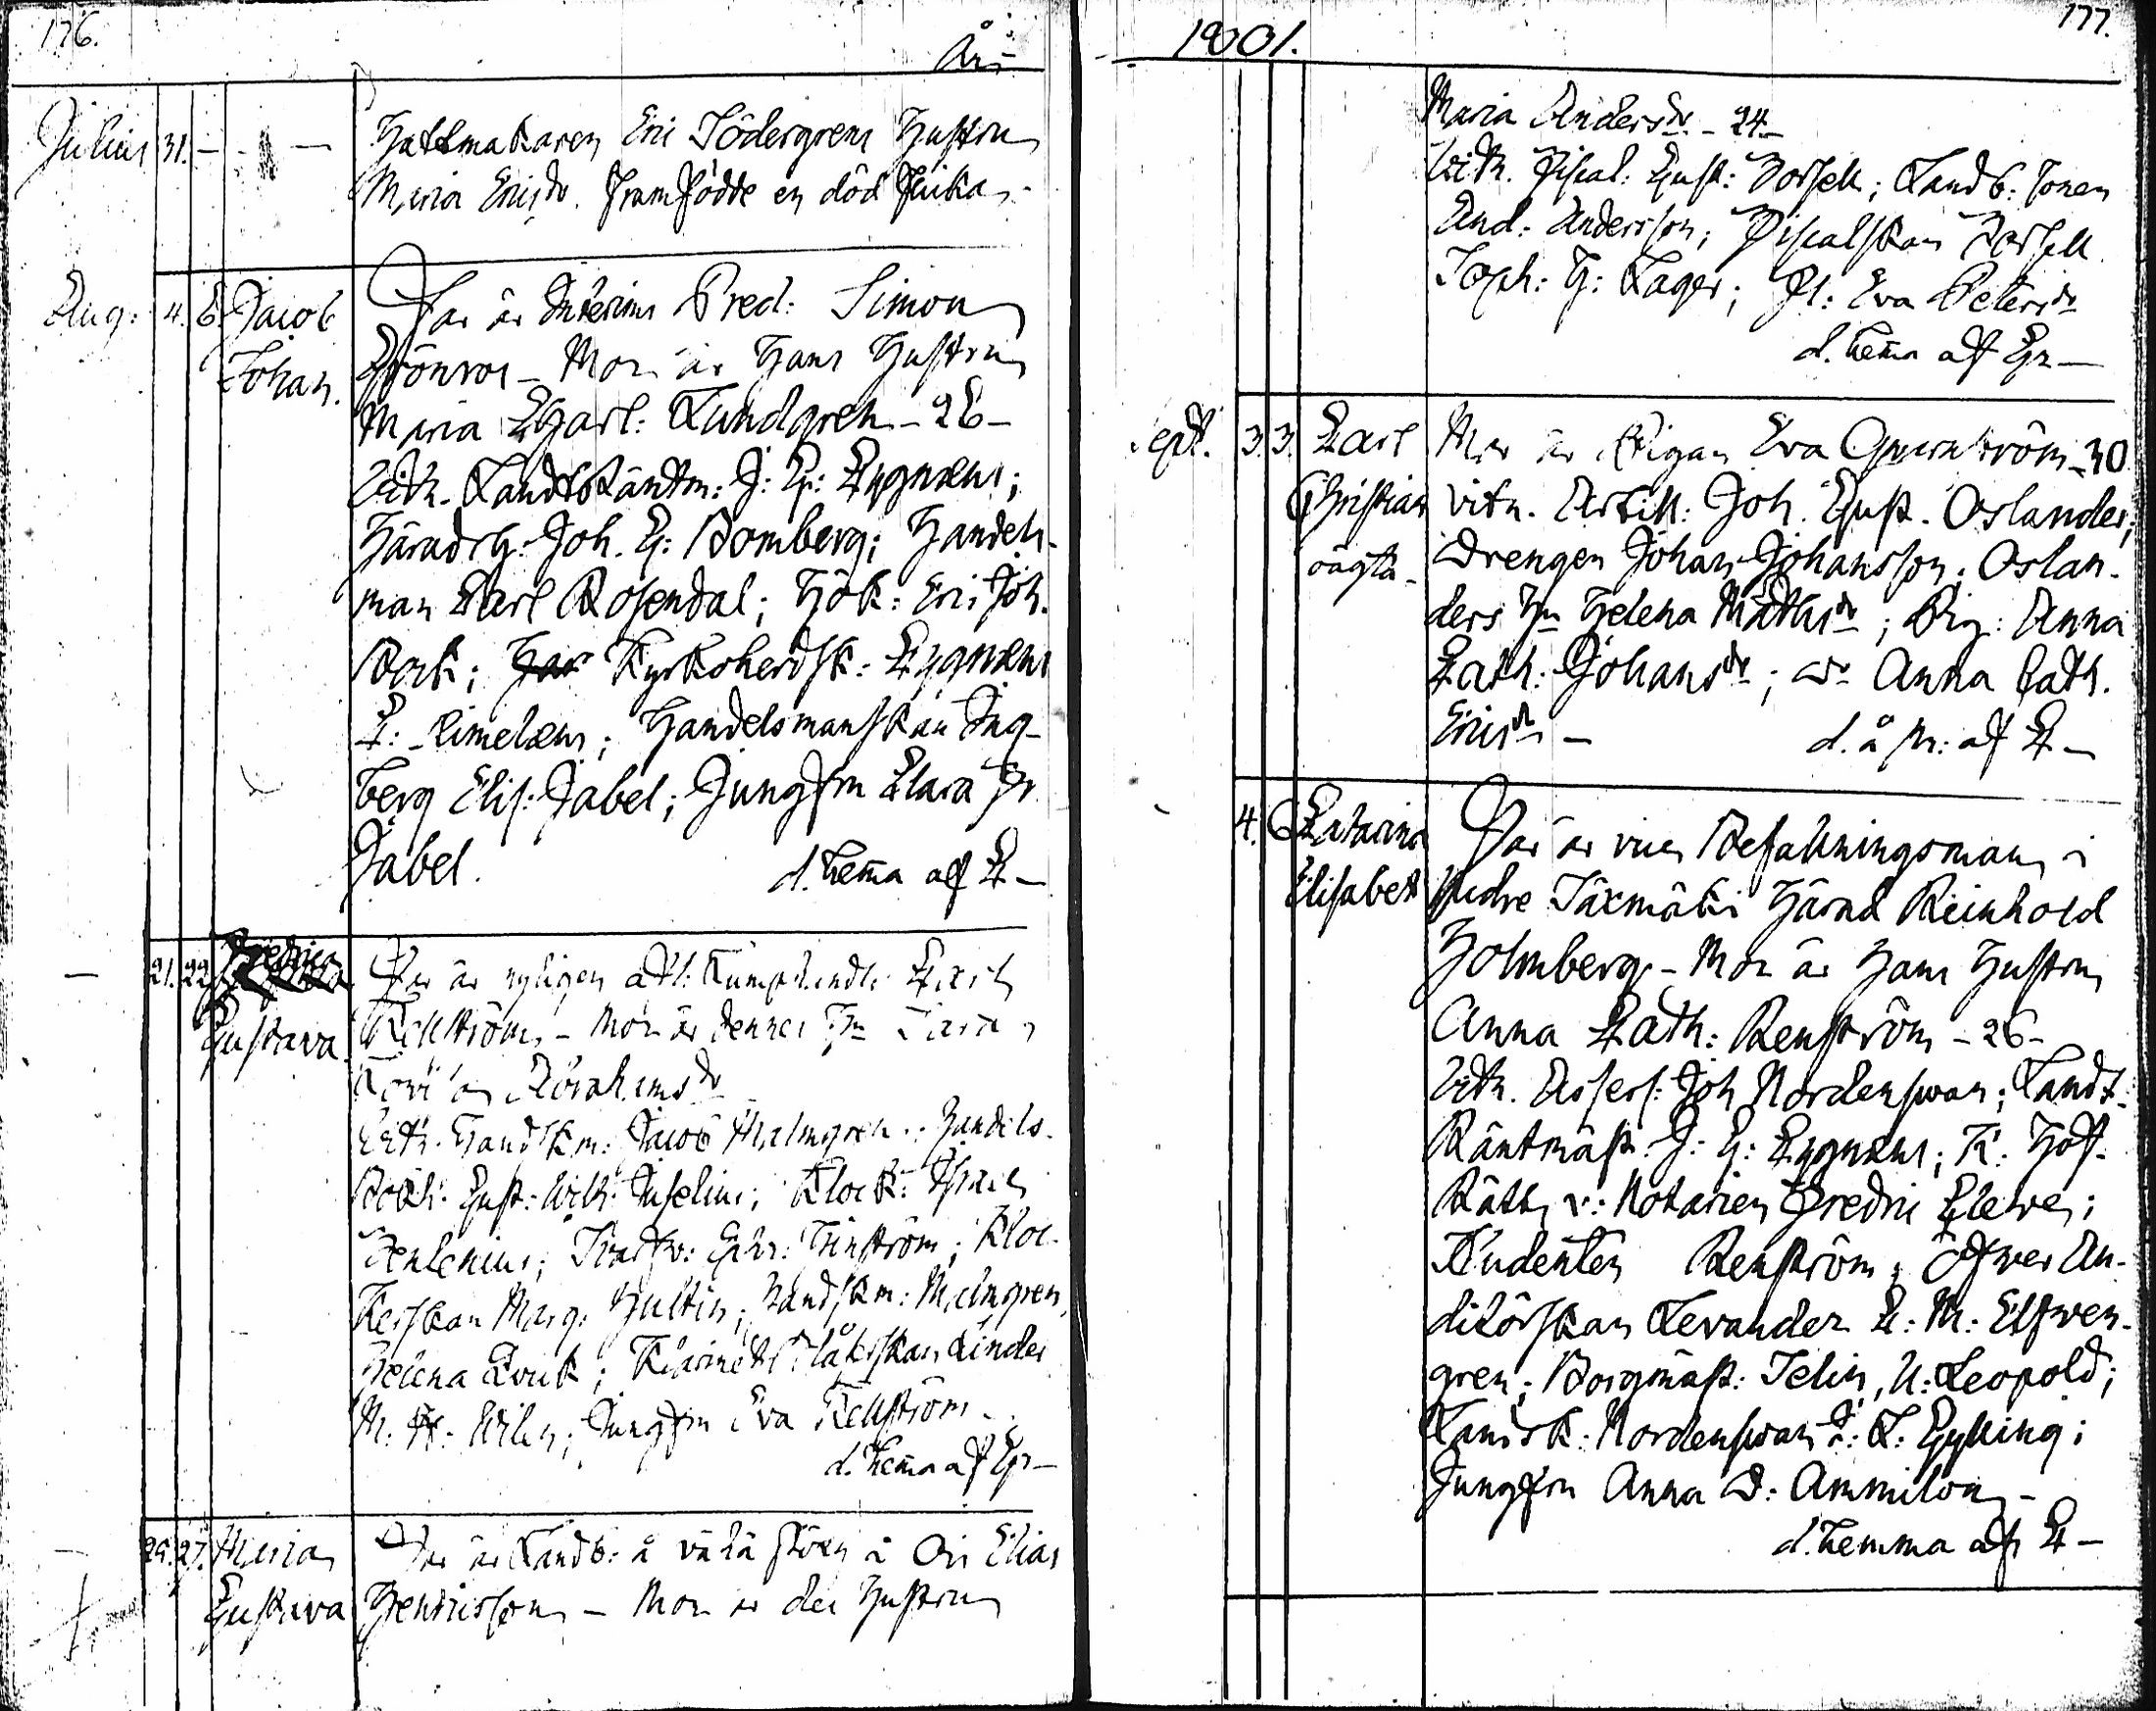 176.
År
Julius 31. — - — Hattmakaren Eric Södergrens Hustru
Maria Ericsdr. framfödde en död flicka
Aug: 4. 6. Jacob Far är Interims Pred: Simon
Johan. Grönros — Mor är Hans Hustru
Maria Charl: Lundgren — 26 —
Vitn. Landtränkm: J: G: Cygnæus;
Häradsh: Joh. G: Bomberg; Handels-
man Carl Rosendal; Hök: Eric Joh.
Bork; Kyrkoherdsk: Cygnæus
C: Limelæus; Handelsmanskan Ing-
berg Elis: Jabel; Jungfru Clara Fr.
Jabel. d. hema af C —
— 21. 22. Fredrica Far är nyligen afl: Carl
Gustava Kellström, — Mor är dennes Hu
Abrahamsdr
Vitn. Handskm: Jacob Malmgren; Handels-
Bokh: Gust: Wilh: Aselius; Klock:
Zenlenius; Svarfv: Tenström; Kloc-
kerskan Marg: Hultin; Handskm: Malmgren,
Helena Qvick; Linder
M: Jungfru Eva Kellström —
d. hema af Gr —
— 25. 27. Maria Far är Landb: å å Ois Elias
Gustava Hendricsson — Mor är des Hustru
1801.
177.
Maria Andersdr — 24 —
Vitn. Fiscal: Gust: Forsell; Landb: sonen
And: Andersson; Fiscalskan Forsell
Soph: H: Lager; Pl: Eva Petersdr
d. hema af Gr —
Sept. 3. 3. Carl Mor är Pigan Eva Qvarnström — 30.
Christian Vitn. Artill: Joh. Gust. Oslander;
oägta — Drengen Johan Johansson; Oslan-
ders Hu Helena Mattsdr; Pig: Anna
Cath: Johansdr; do Anna Cath.
Ericsdr — d. å Pr: af C —
4. 6 Catarina Far är vice Befallningsman i
Elisabet Nedre Säxmäki Härad Reinhold
Holmberg — Mor är Hans Hustru
Anna Cath: Renström — 26 —
Vitn. Assess: Joh Nordenswan; Landt-
Räntmäst: J: G: Cygnæus; K. Hof-
Rätts v: Notarien Fredric Clewe;
Studenten Renström; Öfwer Au-
ditörskan Levander C: M: Elfwen-
gren; Borgmäst: Selin, U: Leopold;
Kamrsk: Nordenswan C: L: Gylling;
Jungfru Anna D: Ammilon —
d. hemma af C —